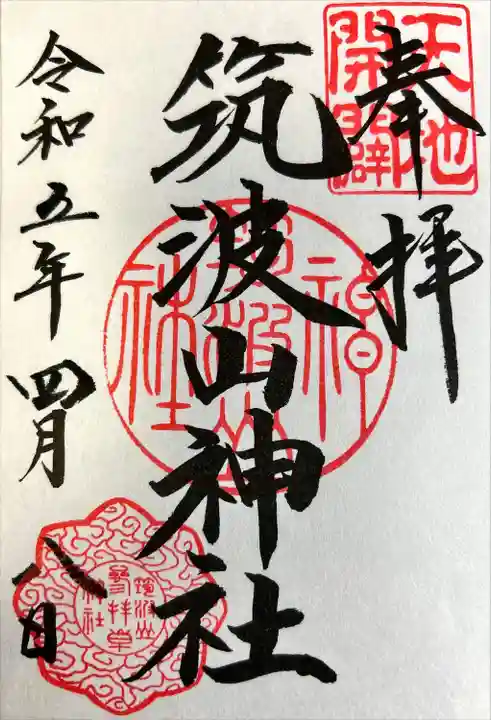 奉拝
天地
開闢
筑波山神社
令和五年四月八日